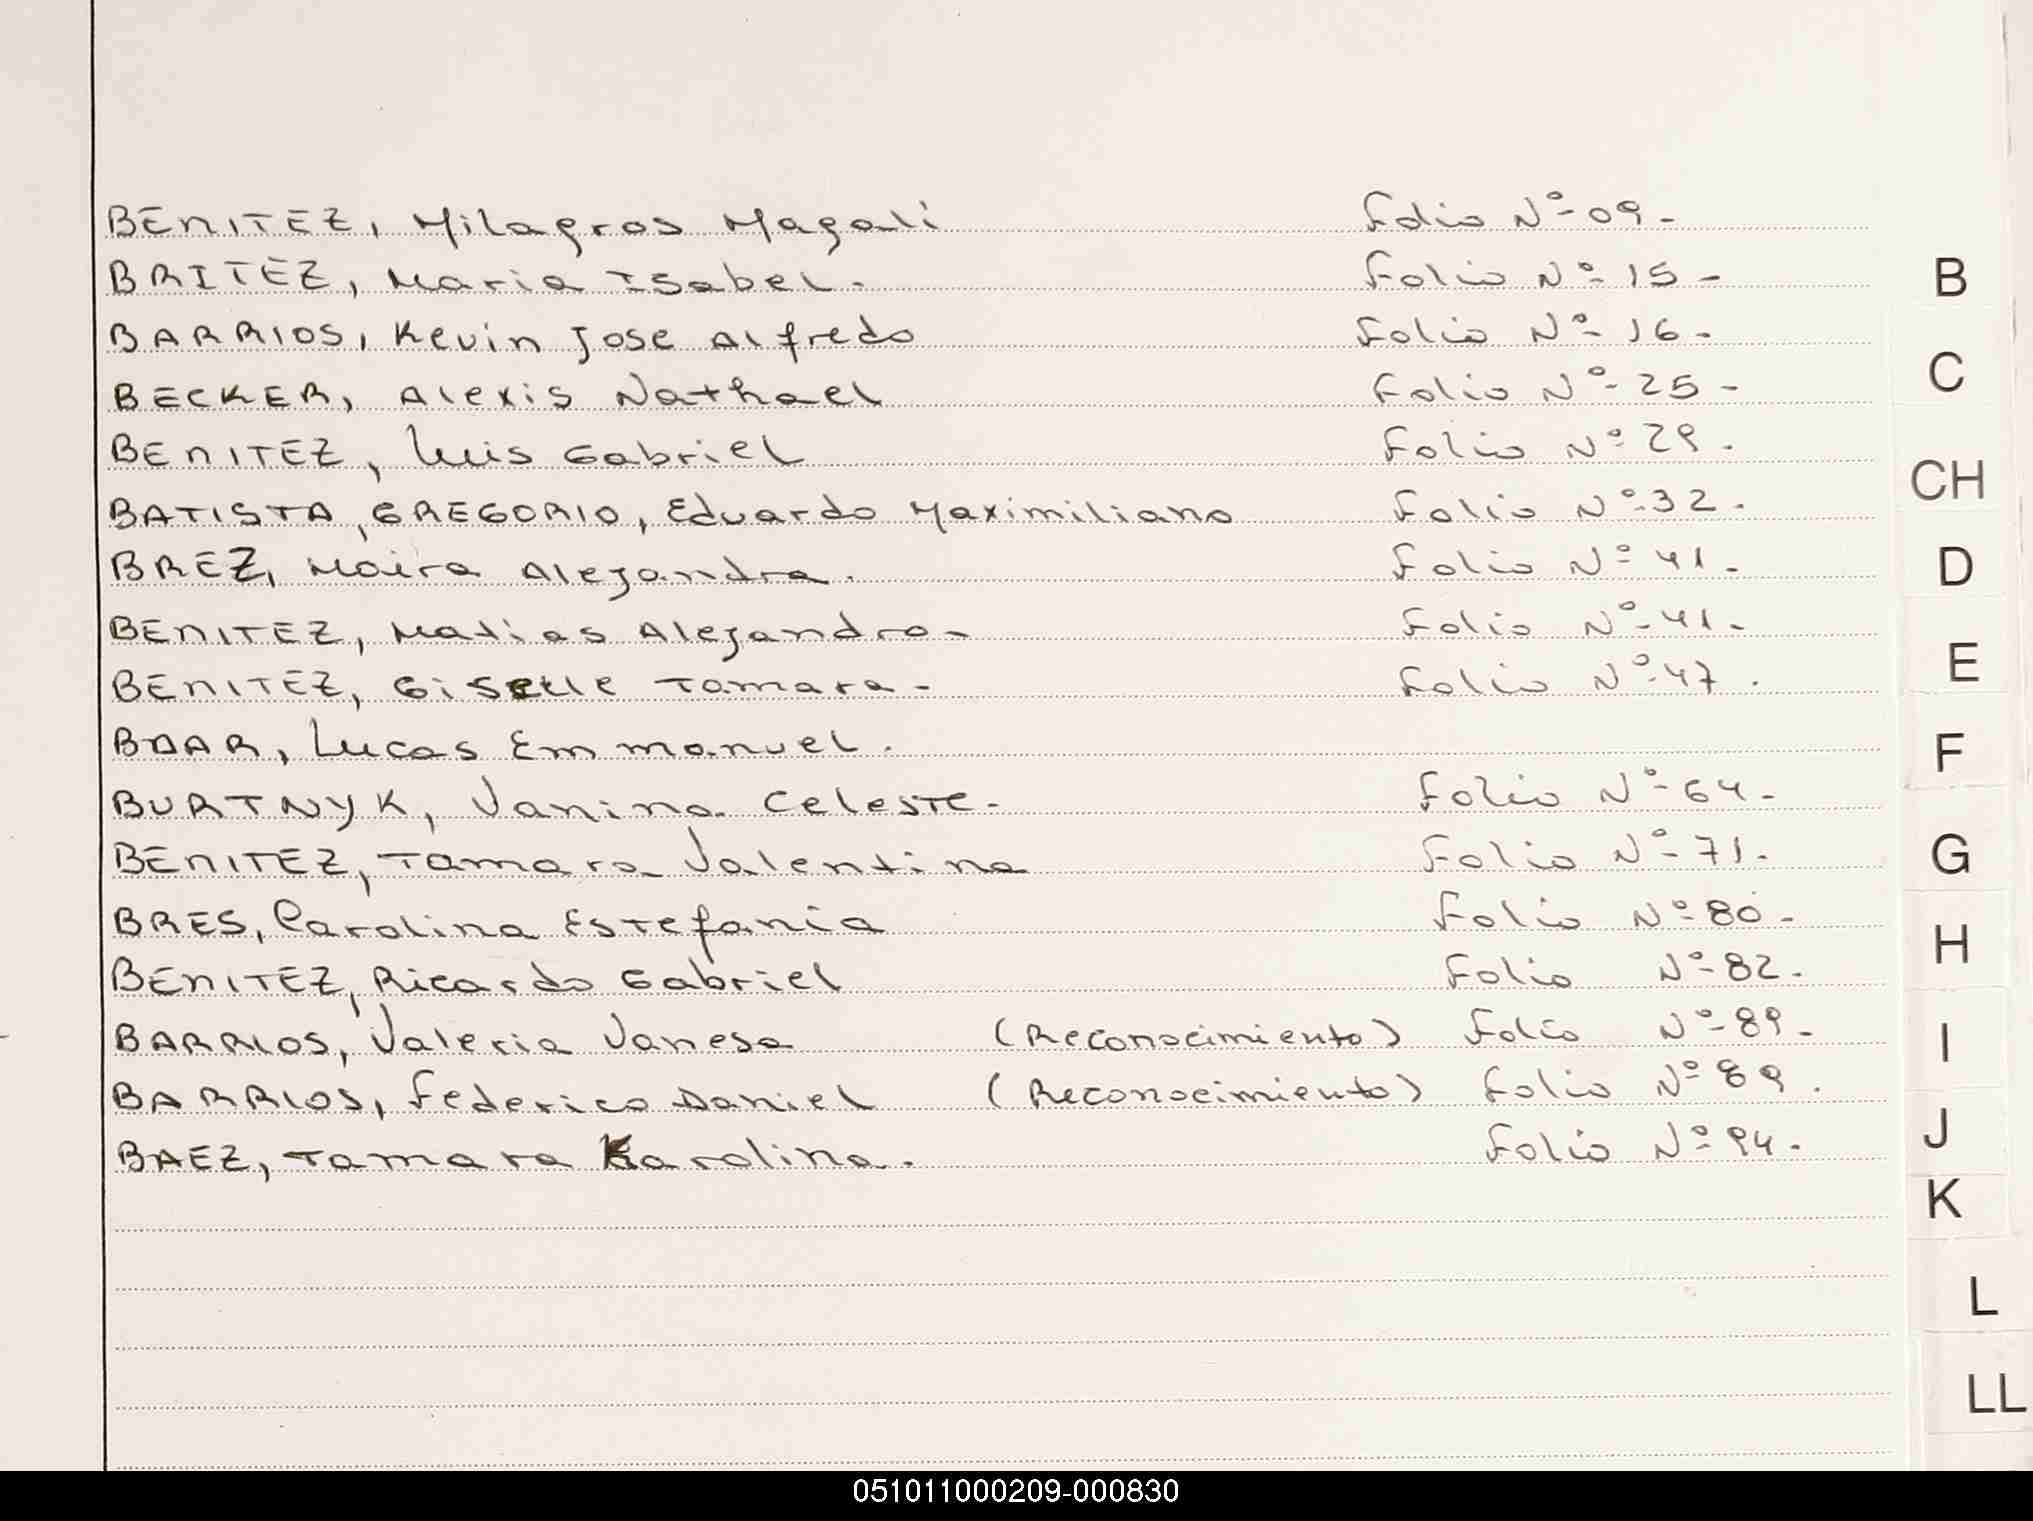 BENITEZ, Milagros Magali Folio Nº 09.-
BRITEZ, Maria Isabel. Folio Nº 15-
BARRIOS, Kevin Jose Alfredo Folio Nº 16.-
BECKER, Alexis Nathael Folio Nº 25-
BENITEZ, Luis Gabriel Folio Nº 29.
BATISTA, GREGORIO, Eduardo Maximiliano Folio Nº 32.
BREZ, Maira Alejandra. Folio Nº 41.
BENITEZ, Matias Alejandro- Folio Nº 41.
BENITEZ, Giselle Tamara- Folio Nº 47.
Lucas Emmanuel.
BURTNYK, Vanina Celeste- Folio Nº 64-
BENITEZ, Tamara Valentina Folio Nº 71.
BRES, Carolina Estefania Folio Nº 80-
BENITEZ, Ricardo Gabriel Folio Nº 82.
BARRIOS, Valeria Vanesa (Reconocimiento) Folio Nº 89-
BARRIOS, Federico Daniel (Reconocimiento) Folio Nº 89.
BAEZ, Tamara Karolina. Folio Nº 94.
B
C
CH
D
E
F
G
H
I
J
K
L
LL
051011000209-000830